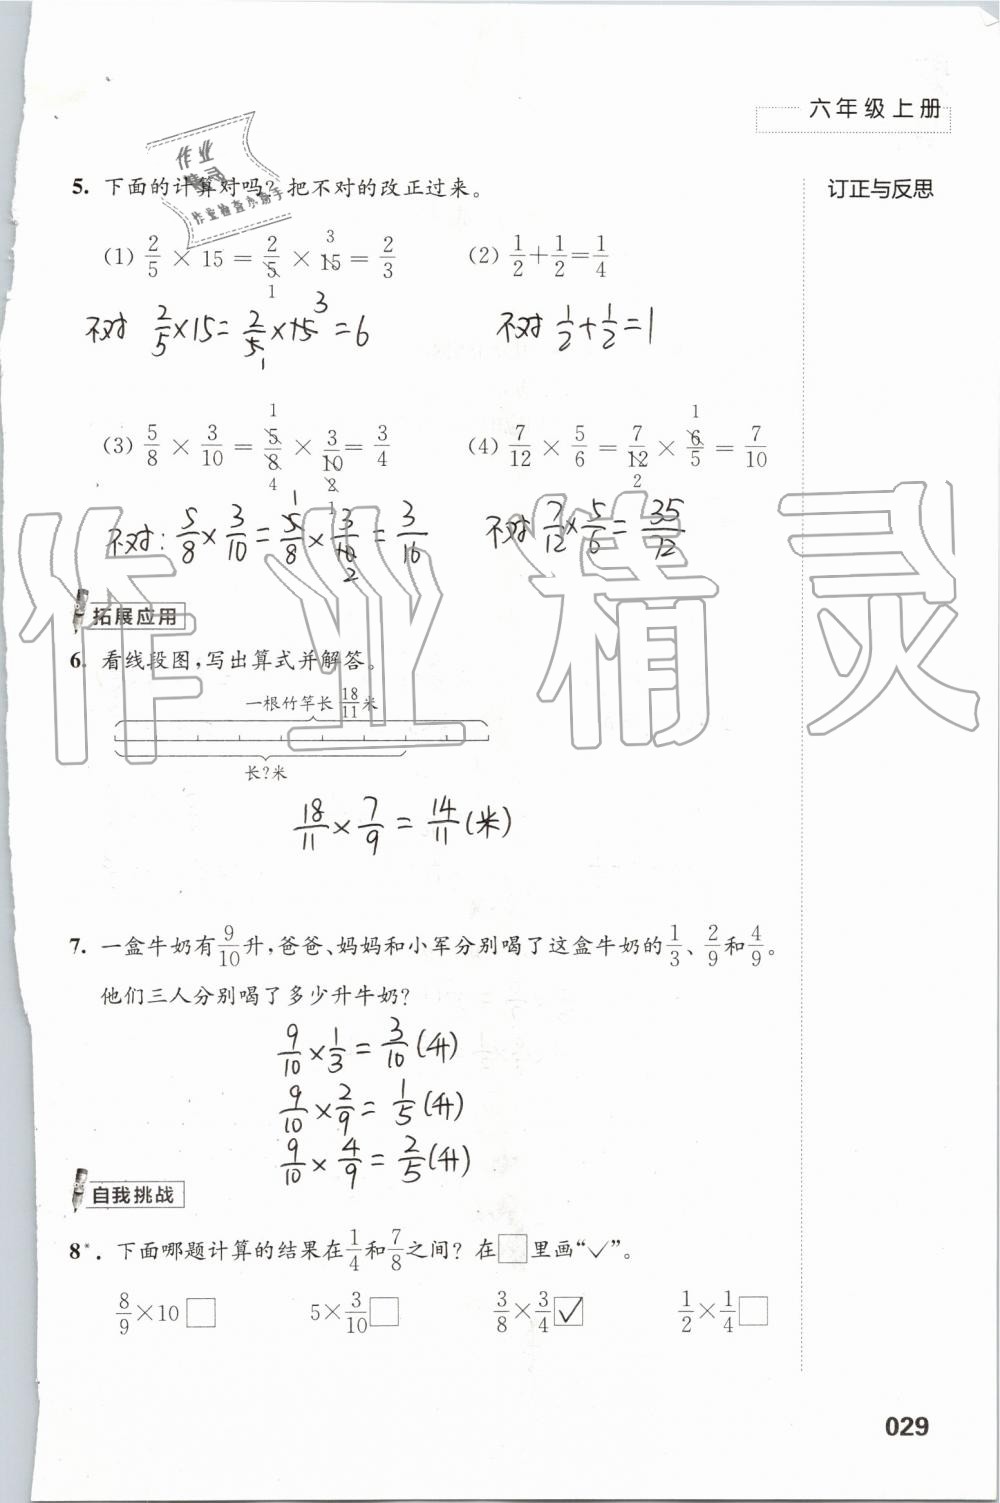 六年级上册
作业
精灵
作业检查小助手
订正与反思
5. 下面的计算对吗?把不对的改正过来。
(1) 2/5 × 15 = 2/5 × 15 = 2/3
3
1
(2) 1/2 + 1/2 = 1/4
不对 2/5 × 15 = 2/5 × 15 = 6
3
1
不对 1/2 + 1/2 = 1
(3) 5/8 × 3/10 = 5/8 × 3/10 = 3/4
1
4 2
1
(4) 7/12 × 5/6 = 7/12 × 6/5 = 7/10
1
2
不对: 5/8 × 3/10 = 5/8 × 3/10 = 3/16
1
2
不对 7/12 × 5/6 = 35/72
作业精灵
拓展应用
6. 看线段图,写出算式并解答。
一根竹竿长 18/11 米
长?米
18/11 × 7/9 = 14/11 (米)
7. 一盒牛奶有 9/10 升,爸爸、妈妈和小军分别喝了这盒牛奶的 1/3、2/9 和 4/9。
他们三人分别喝了多少升牛奶?
9/10 × 1/3 = 3/10 (升)
9/10 × 2/9 = 1/5 (升)
9/10 × 4/9 = 2/5 (升)
自我挑战
8*. 下面哪题计算的结果在 1/4 和 7/8 之间?在□里画“✓”。
8/9 × 10 □ 5 × 3/10 □ 3/8 × 3/4 ☑ 1/2 × 1/4 □
029